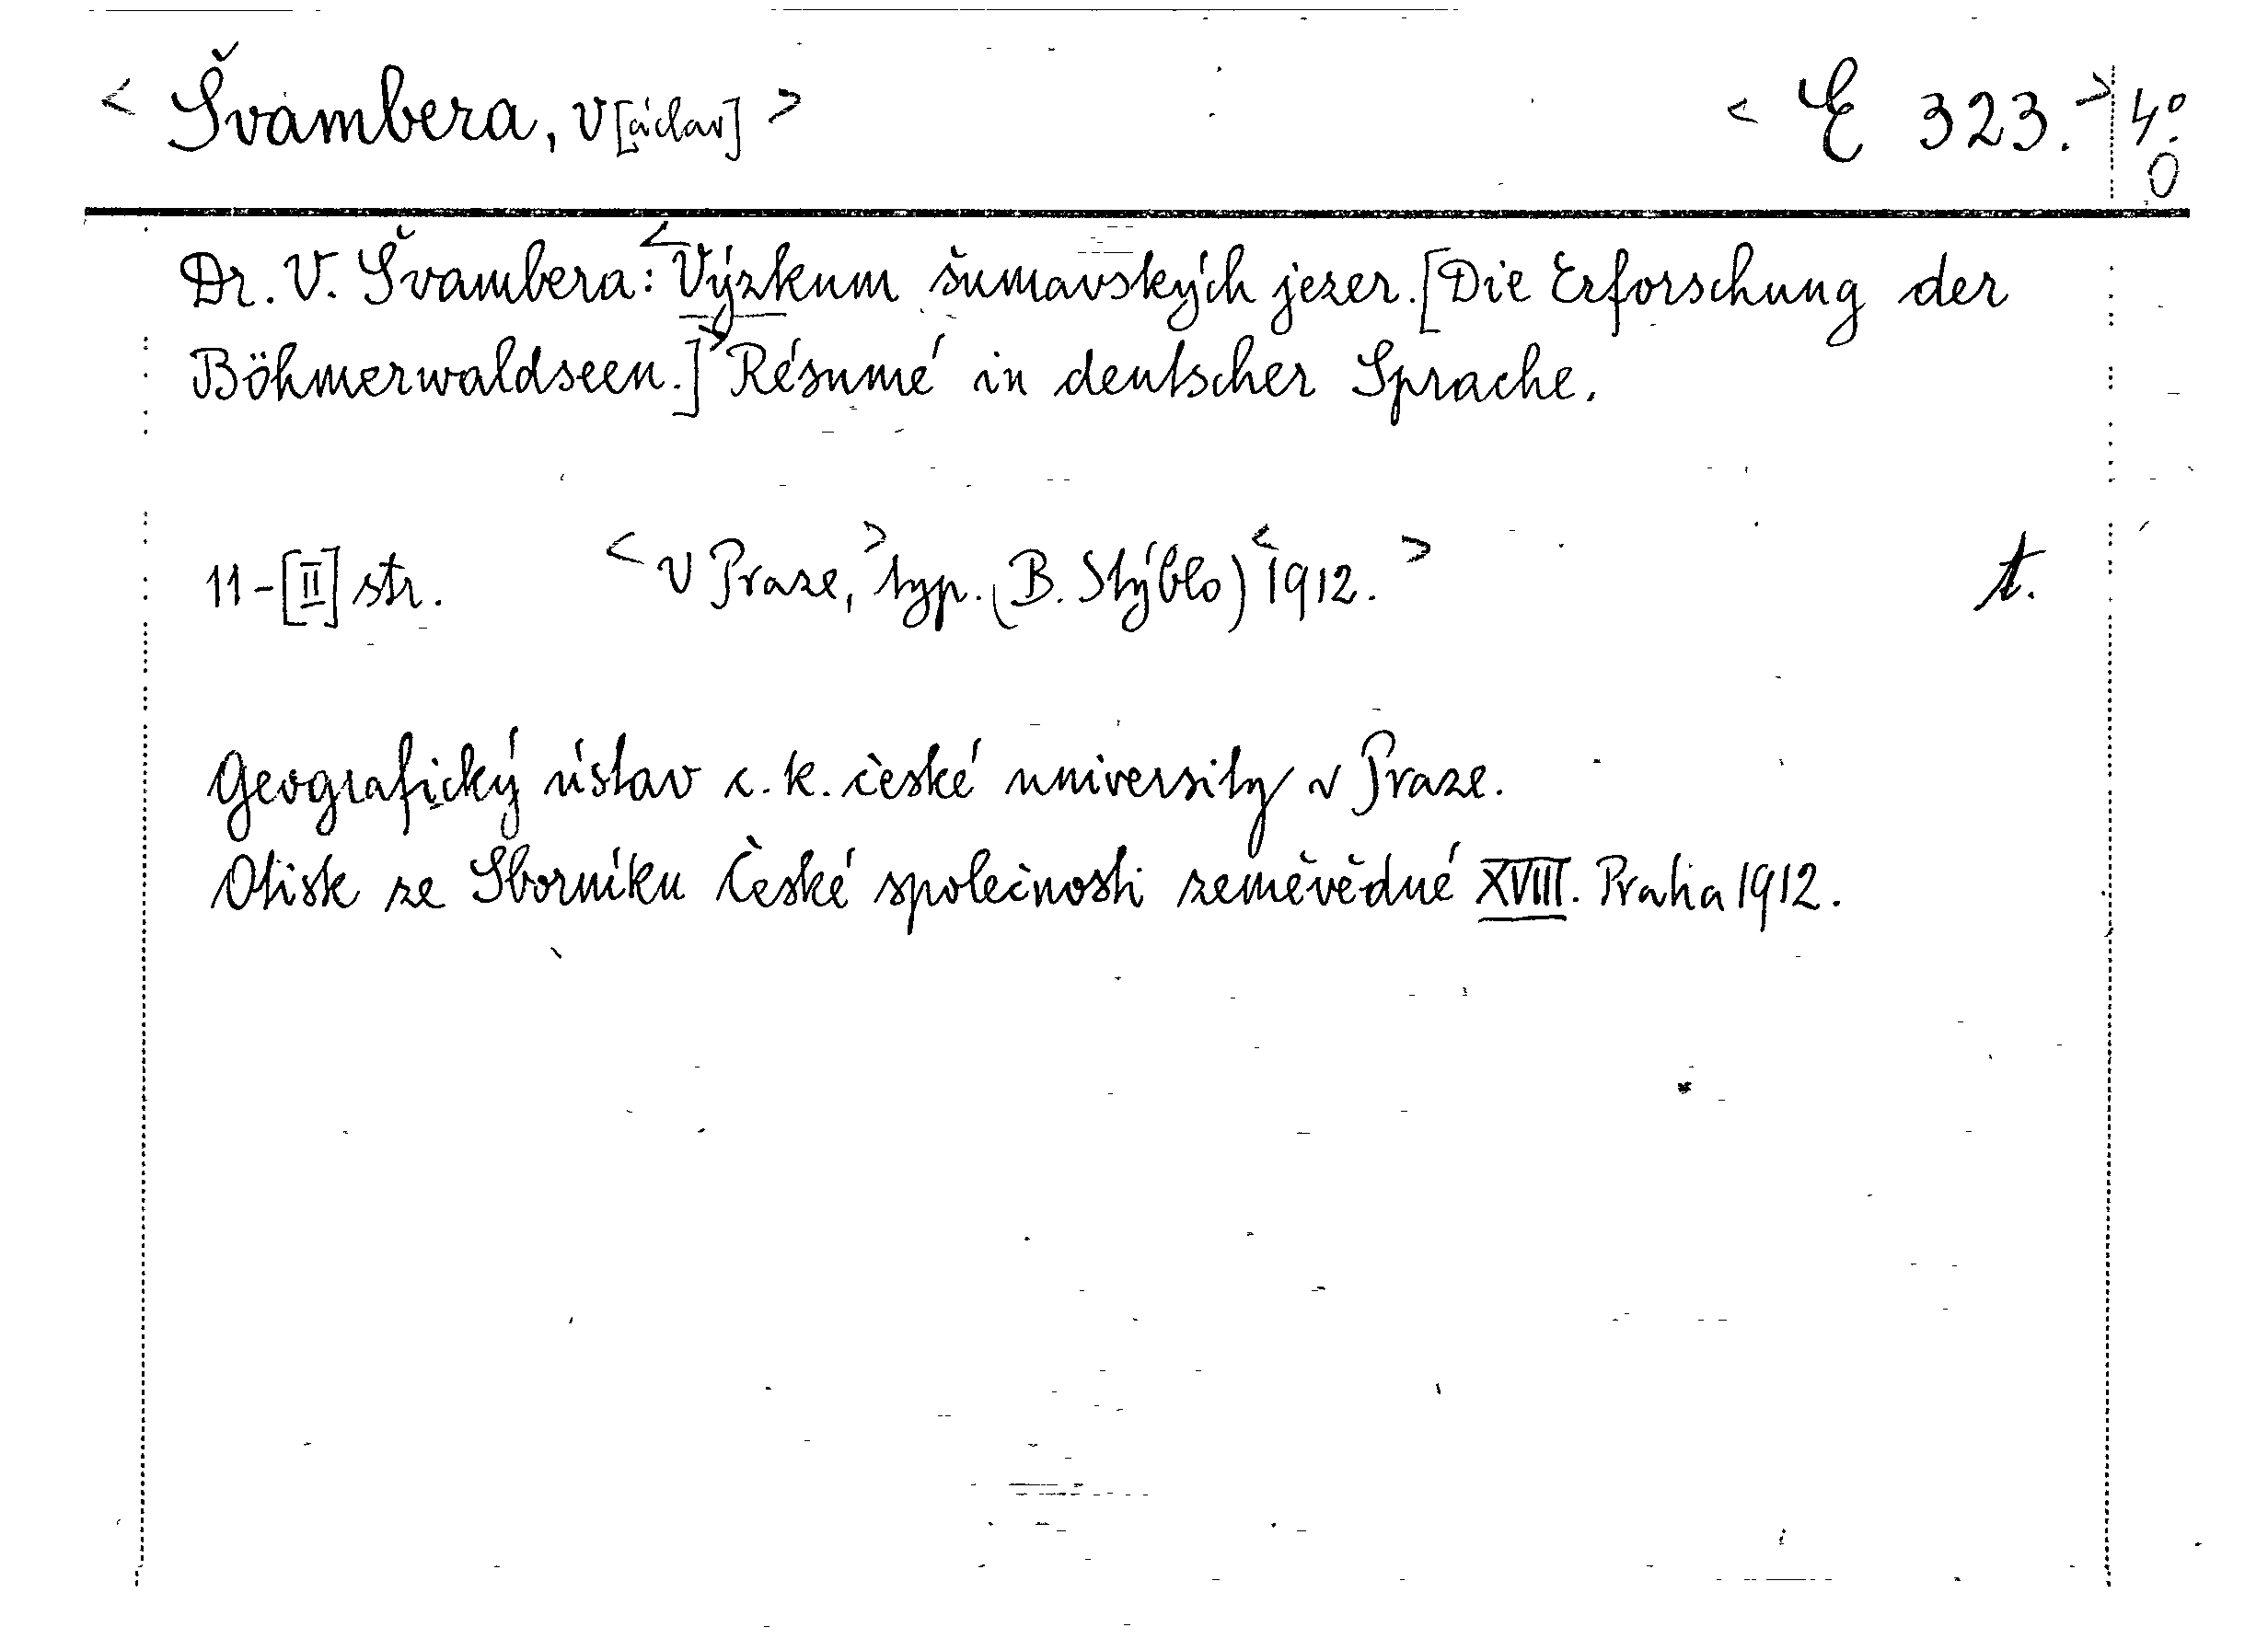 < Švambera, V[áclav] > < E 323. > 4º.
0
Dr. V. Švambera: < Výzkum šumavských jezer. [Die Erforschung der
Böhmerwaldseen.] > Résumé in deutscher Sprache.
11-[II] str. < V Praze, > typ. (B. Stýblo) < 1912. > t.
Geografický ústav c. k. české university v Praze.
Otisk ze Sborníku České společnosti zeměvědné XVIII. Praha 1912.